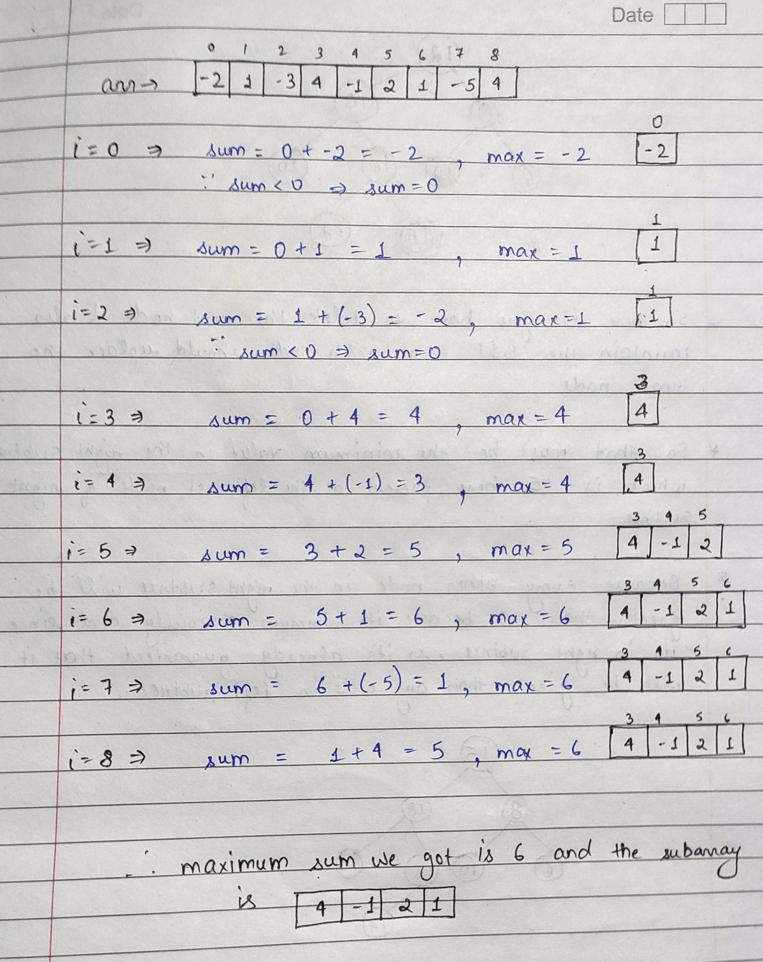 Date
0 1 2 3 4 5 6 7 8
arr → -2 1 -3 4 -1 2 1 -5 4
0
i = 0 ⇒ sum = 0 + -2 = -2 , max = -2 -2
∵ sum < 0 ⇒ sum = 0
1
i = 1 ⇒ sum = 0 + 1 = 1 , max = 1 1
1
i = 2 ⇒ sum = 1 + (-3) = -2 , max = 1 1
∵ sum < 0 ⇒ sum = 0
3
i = 3 ⇒ sum = 0 + 4 = 4 , max = 4 4
3
i = 4 ⇒ sum = 4 + (-1) = 3 , max = 4 4
3 4 5
i = 5 ⇒ sum = 3 + 2 = 5 , max = 5 4 -1 2
3 4 5 6
i = 6 ⇒ sum = 5 + 1 = 6 , max = 6 4 -1 2 1
3 4 5 6
i = 7 ⇒ sum = 6 + (-5) = 1 , max = 6 4 -1 2 1
3 4 5 6
i = 8 ⇒ sum = 1 + 4 = 5 , max = 6 4 -1 2 1
∴ maximum sum we got is 6 and the subarray
is 4 -1 2 1